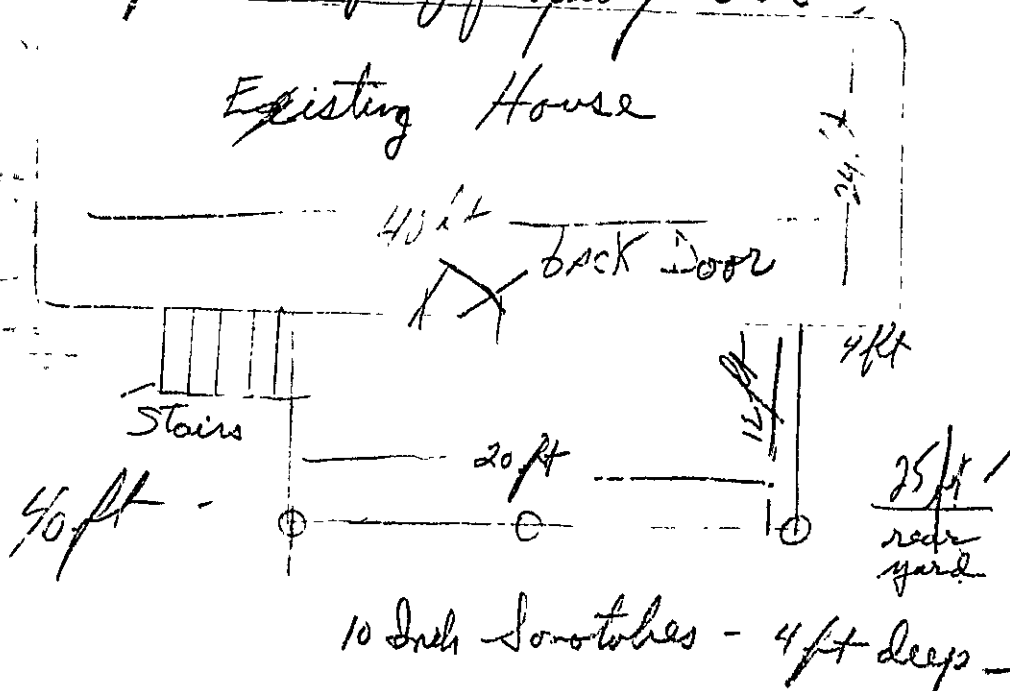 Existing House
24 ft
40 ft
back Door
4 ft
12 ft
Stairs
20 ft
40 ft -
25 ft
rear
yard
10 Inch Sonotubes - 4 ft deep -